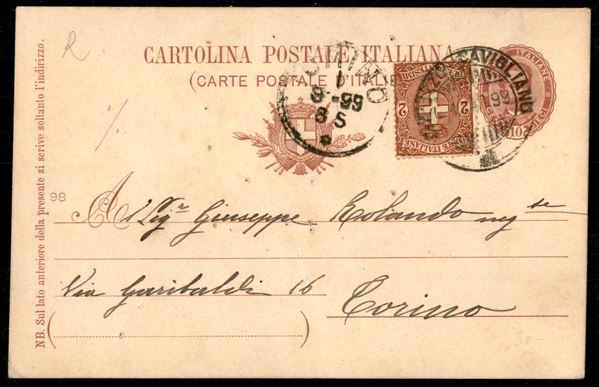 R
CARTOLINA POSTALE ITALIANA
(CARTE POSTALE D'ITALIE
TORINO
1
8-99
8 S
SAVIGLIANO
99
2 2
POSTE ITALIANE
10
98
All Sigr Giuseppe Rolando negte
Via Garibaldi 16
Torino
NB. Sul lato anteriore della presente si scrive soltanto l'indirizzo.
30-